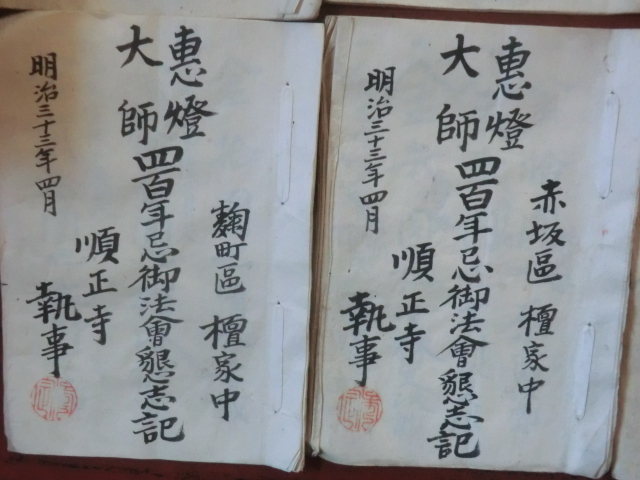 麹町區 檀家中
惠燈
大師
四百年忌御法會懇志記
順正寺
執事
明治三十三年四月
赤坂區 檀家中
惠燈
大師
四百年忌御法會懇志記
順正寺
執事
明治三十三年四月